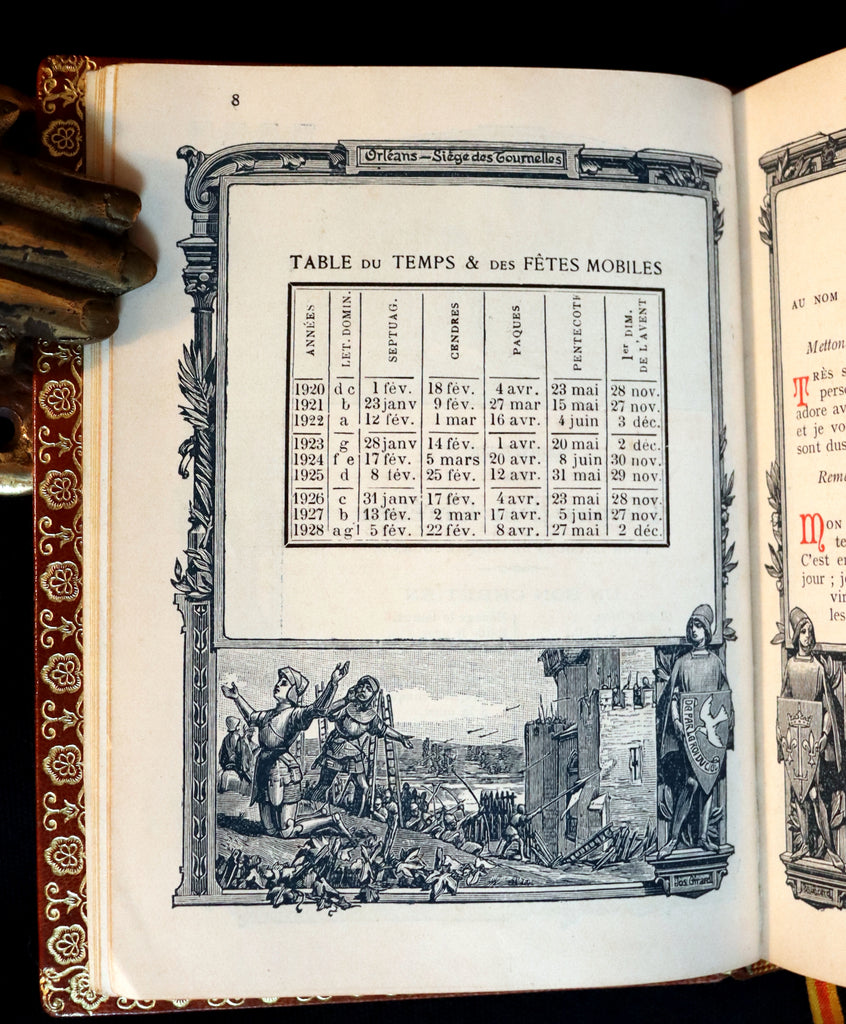 8
Orléans — Siège des Tournelles
TABLE DU TEMPS & DES FÊTES MOBILES
ANNÉES LET. DOMIN. SEPTUAG. CENDRES PAQUES PENTECOTE 1er DIM. DE L'AVENT
1920 d c 1 fév. 18 fév. 4 avr. 23 mai 28 nov.
1921 b 23 janv 9 fév. 27 mar 15 mai 27 nov.
1922 a 12 fév. 1 mar 16 avr. 4 juin 3 déc.
1923 g 28 janv 14 fév. 1 avr. 20 mai 2 déc.
1924 f e 17 fév. 5 mars 20 avr. 8 juin 30 nov.
1925 d 8 fév. 25 fév. 12 avr. 31 mai 29 nov.
1926 c 31 janv 17 fév. 4 avr. 23 mai 28 nov.
1927 b 13 fév. 2 mar 17 avr. 5 juin 27 nov.
1928 a g 5 fév. 22 fév. 8 avr. 27 mai 2 déc.
DE PAR LE ROY DU
AU NOM
Metton
TRÈS S
perso
adore av
et je vo
sont dus
Reme
MON
te
C'est en
jour ; je
vin
les